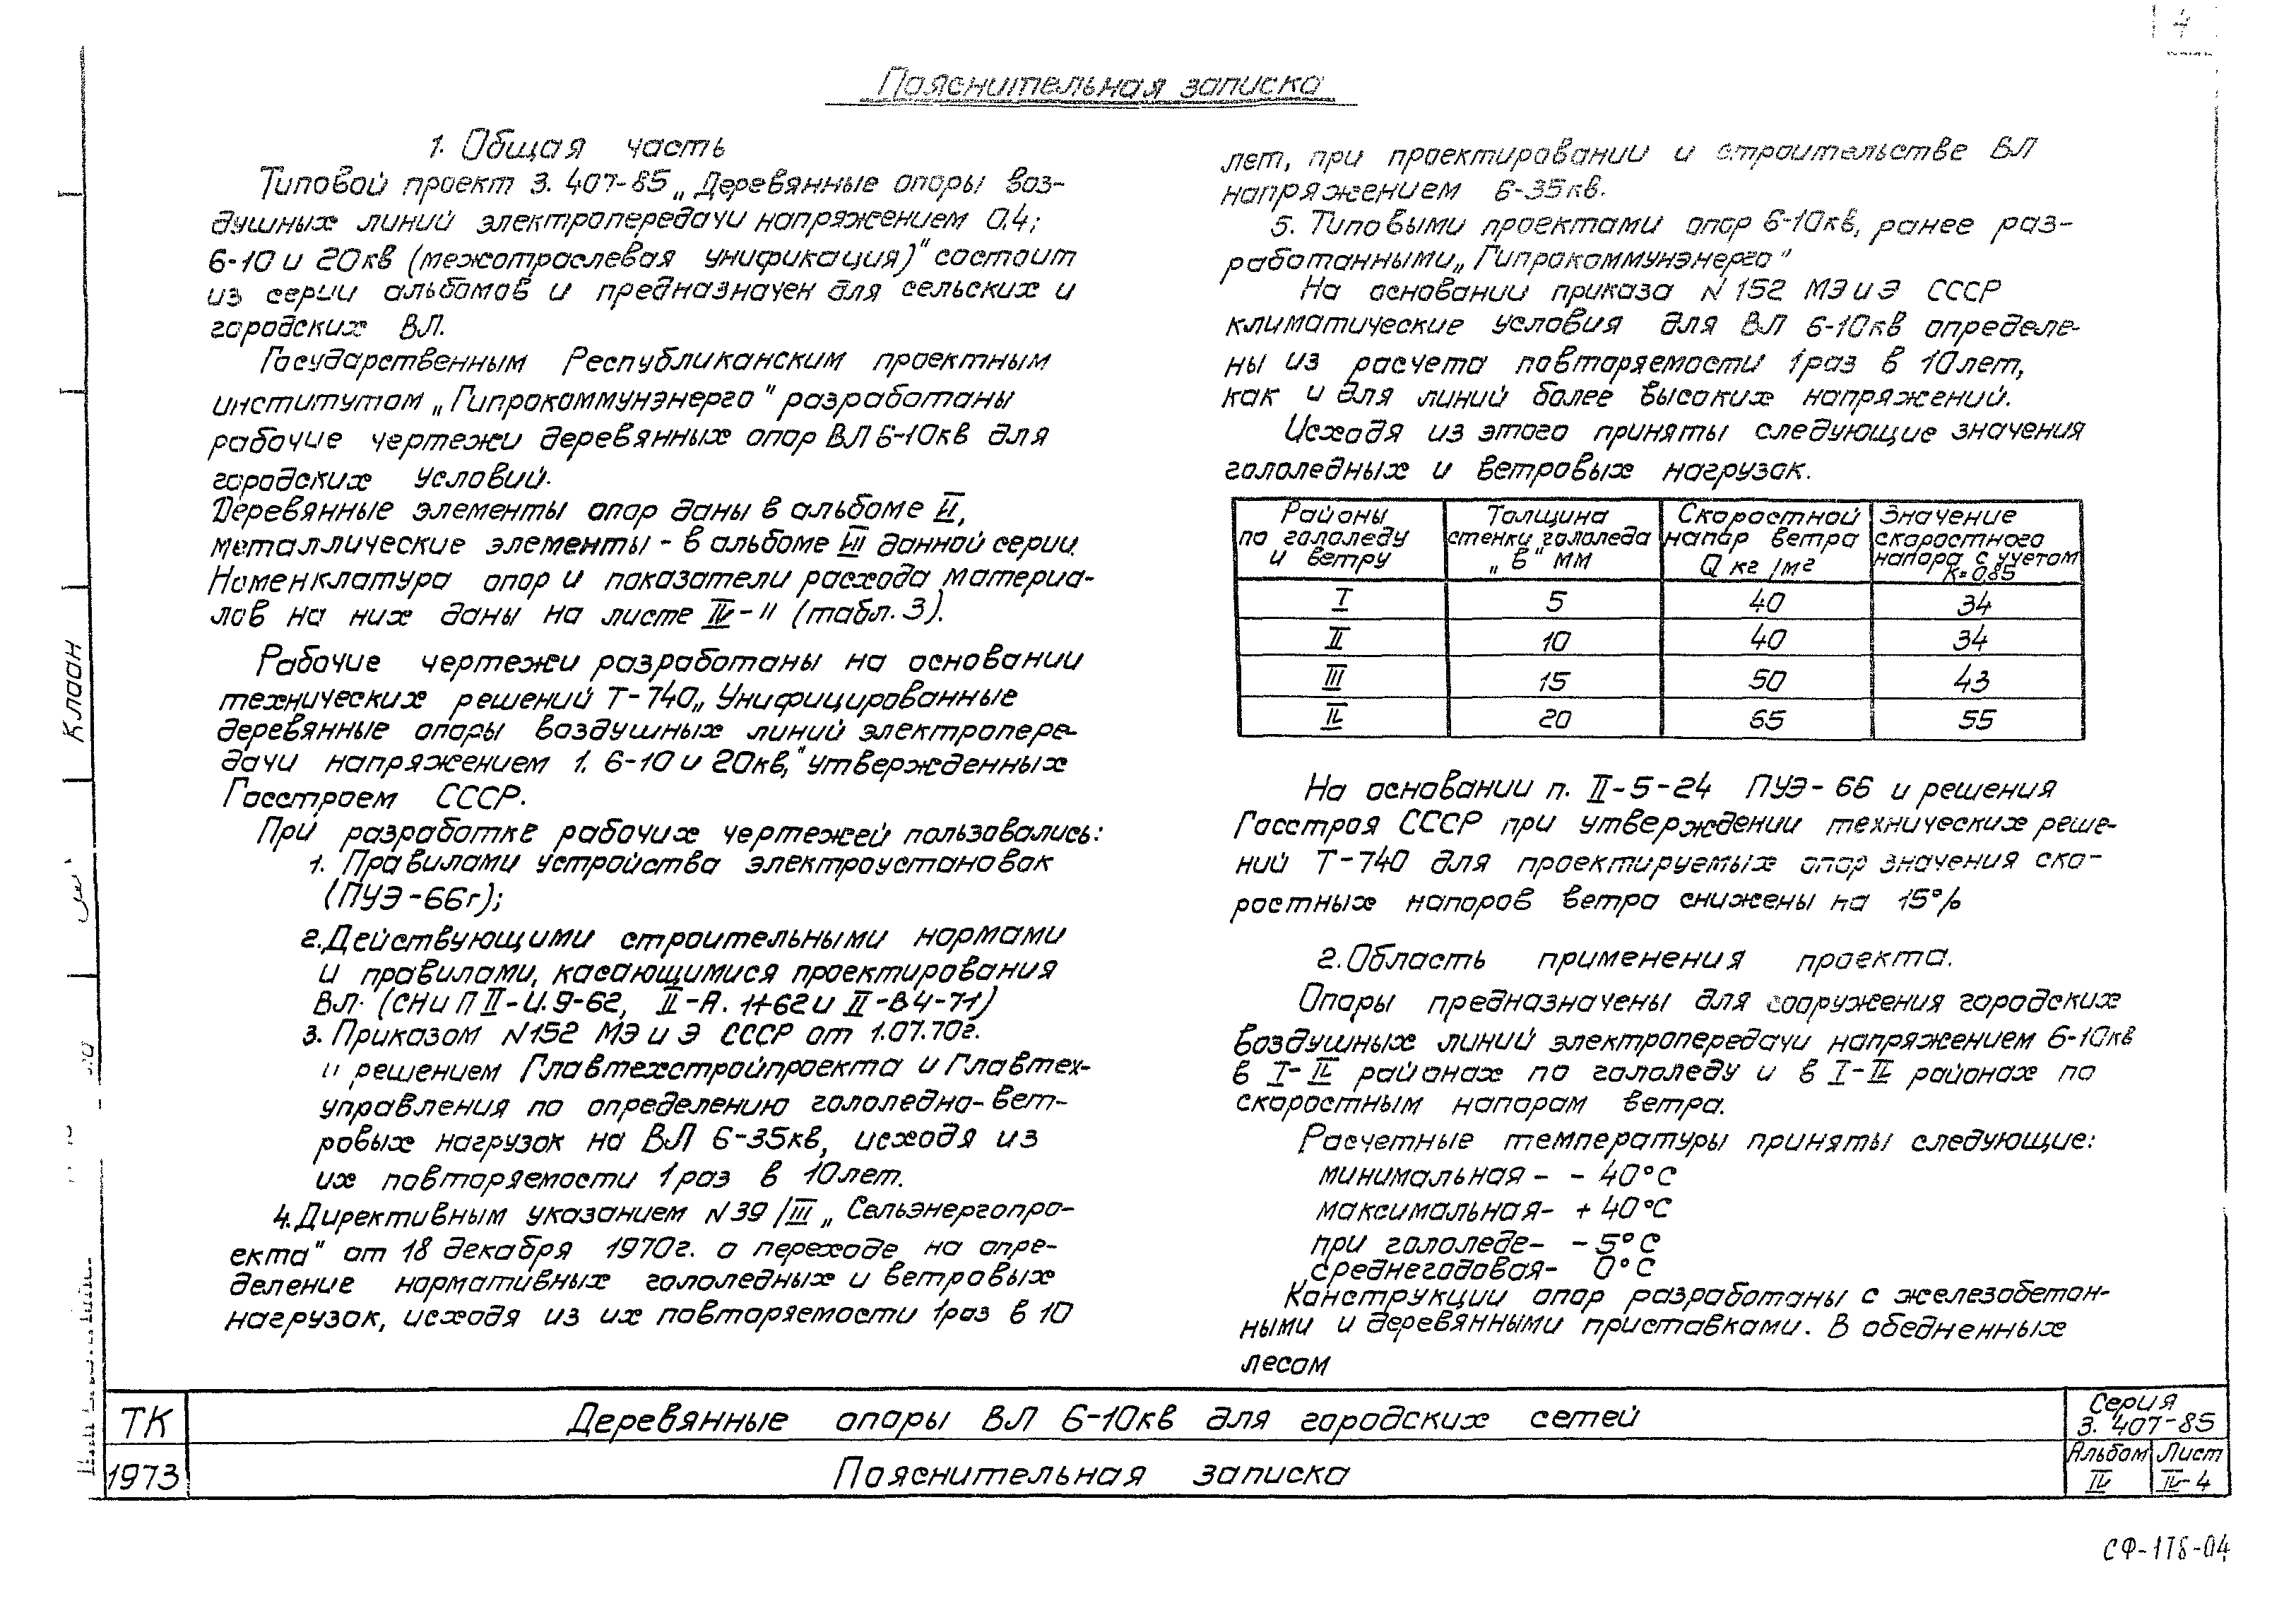 4
Пояснительная записка
1. Общая часть
Типовой проект 3.407-85 „Деревянные опоры воз-
душных линий электропередачи напряжением 0.4;
6-10 и 20кв (межотраслевая унификация)" состоит
из серии альбомов и предназначен для сельских и
городских ВЛ.
Государственным Республиканским проектным
институтом „Гипрокоммунэнерго" разработаны
рабочие чертежи деревянных опор ВЛ 6-10кв для
городских условий.
Деревянные элементы опор даны в альбоме VI,
металлические элементы - в альбоме VII данной серии.
Номенклатура опор и показатели расхода материа-
лов на них даны на листе IV-11 (табл. 3).
Рабочие чертежи разработаны на основании
технических решений Т-740 „Унифицированные
деревянные опоры воздушных линий электропере-
дачи напряжением 1. 6-10 и 20кв," утвержденных
Госстроем СССР.
При разработке рабочих чертежей пользовались:
1. Правилами устройства электроустановок
(ПУЭ-66г);
2. Действующими строительными нормами
и правилами, касающимися проектирования
ВЛ. (СНиП II-И.9-62, II-А. 11-62 и II-В 4-71)
3. Приказом N152 МЭ и Э СССР от 1.07.70г.
и решением Главтехстройпроекта и Главтех-
управления по определению гололедно-вет-
ровых нагрузок на ВЛ 6-35кв, исходя из
их повторяемости 1 раз в 10 лет.
4. Директивным указанием N39/III „Сельэнергопро-
екта" от 18 декабря 1970г. о переходе на опре-
деление нормативных гололедных и ветровых
нагрузок, исходя из их повторяемости 1 раз в 10
лет, при проектировании и строительстве ВЛ
напряжением 6-35кв.
5. Типовыми проектами опор 6-10кв, ранее раз-
работанными „Гипрокоммунэнерго"
На основании приказа N152 МЭ и Э СССР
климатические условия для ВЛ 6-10кв определе-
ны из расчета повторяемости 1 раз в 10 лет,
как и для линий более высоких напряжений.
Исходя из этого приняты следующие значения
гололедных и ветровых нагрузок.
Районы по гололеду и ветру | Толщина стенки гололеда „в" мм | Скоростной напор ветра Q кг/м2 | Значение скоростного напора с учетом К=0,85
I 5 40 34
II 10 40 34
III 15 50 43
IV 20 65 55
На основании п. II-5-24 ПУЭ-66 и решения
Госстроя СССР при утверждении технических реше-
ний Т-740 для проектируемых опор значения ско-
ростных напоров ветра снижены на 15%
2. Область применения проекта.
Опоры предназначены для сооружения городских
воздушных линий электропередачи напряжением 6-10кв
в I-IV районах по гололеду и в I-IV районах по
скоростным напорам ветра.
Расчетные температуры приняты следующие:
минимальная- - 40°С
максимальная- + 40°С
при гололеде- - 5°С
среднегодовая- 0°С
Конструкции опор разработаны с железобетон-
ными и деревянными приставками. В обедненных
лесом
Клоан
ТК
1973
Деревянные опоры ВЛ 6-10кв для городских сетей
Пояснительная записка
Серия
3.407-85
Альбом Лист
IV IV-4